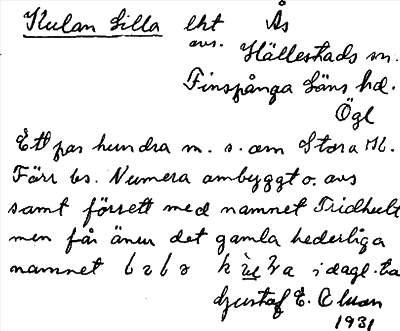 Kulan Lilla lht Ås
avs.
Hällestads sn.
Finspånga läns hd.
Ögl
Ett par hundra m. s. om Stora K.
Förr bs. Numera ombyggt o. avs
samt försett med namnet Fridhult
men får ännu det gamla hederliga
namnet i dagl. ta
Gustaf E.
1931